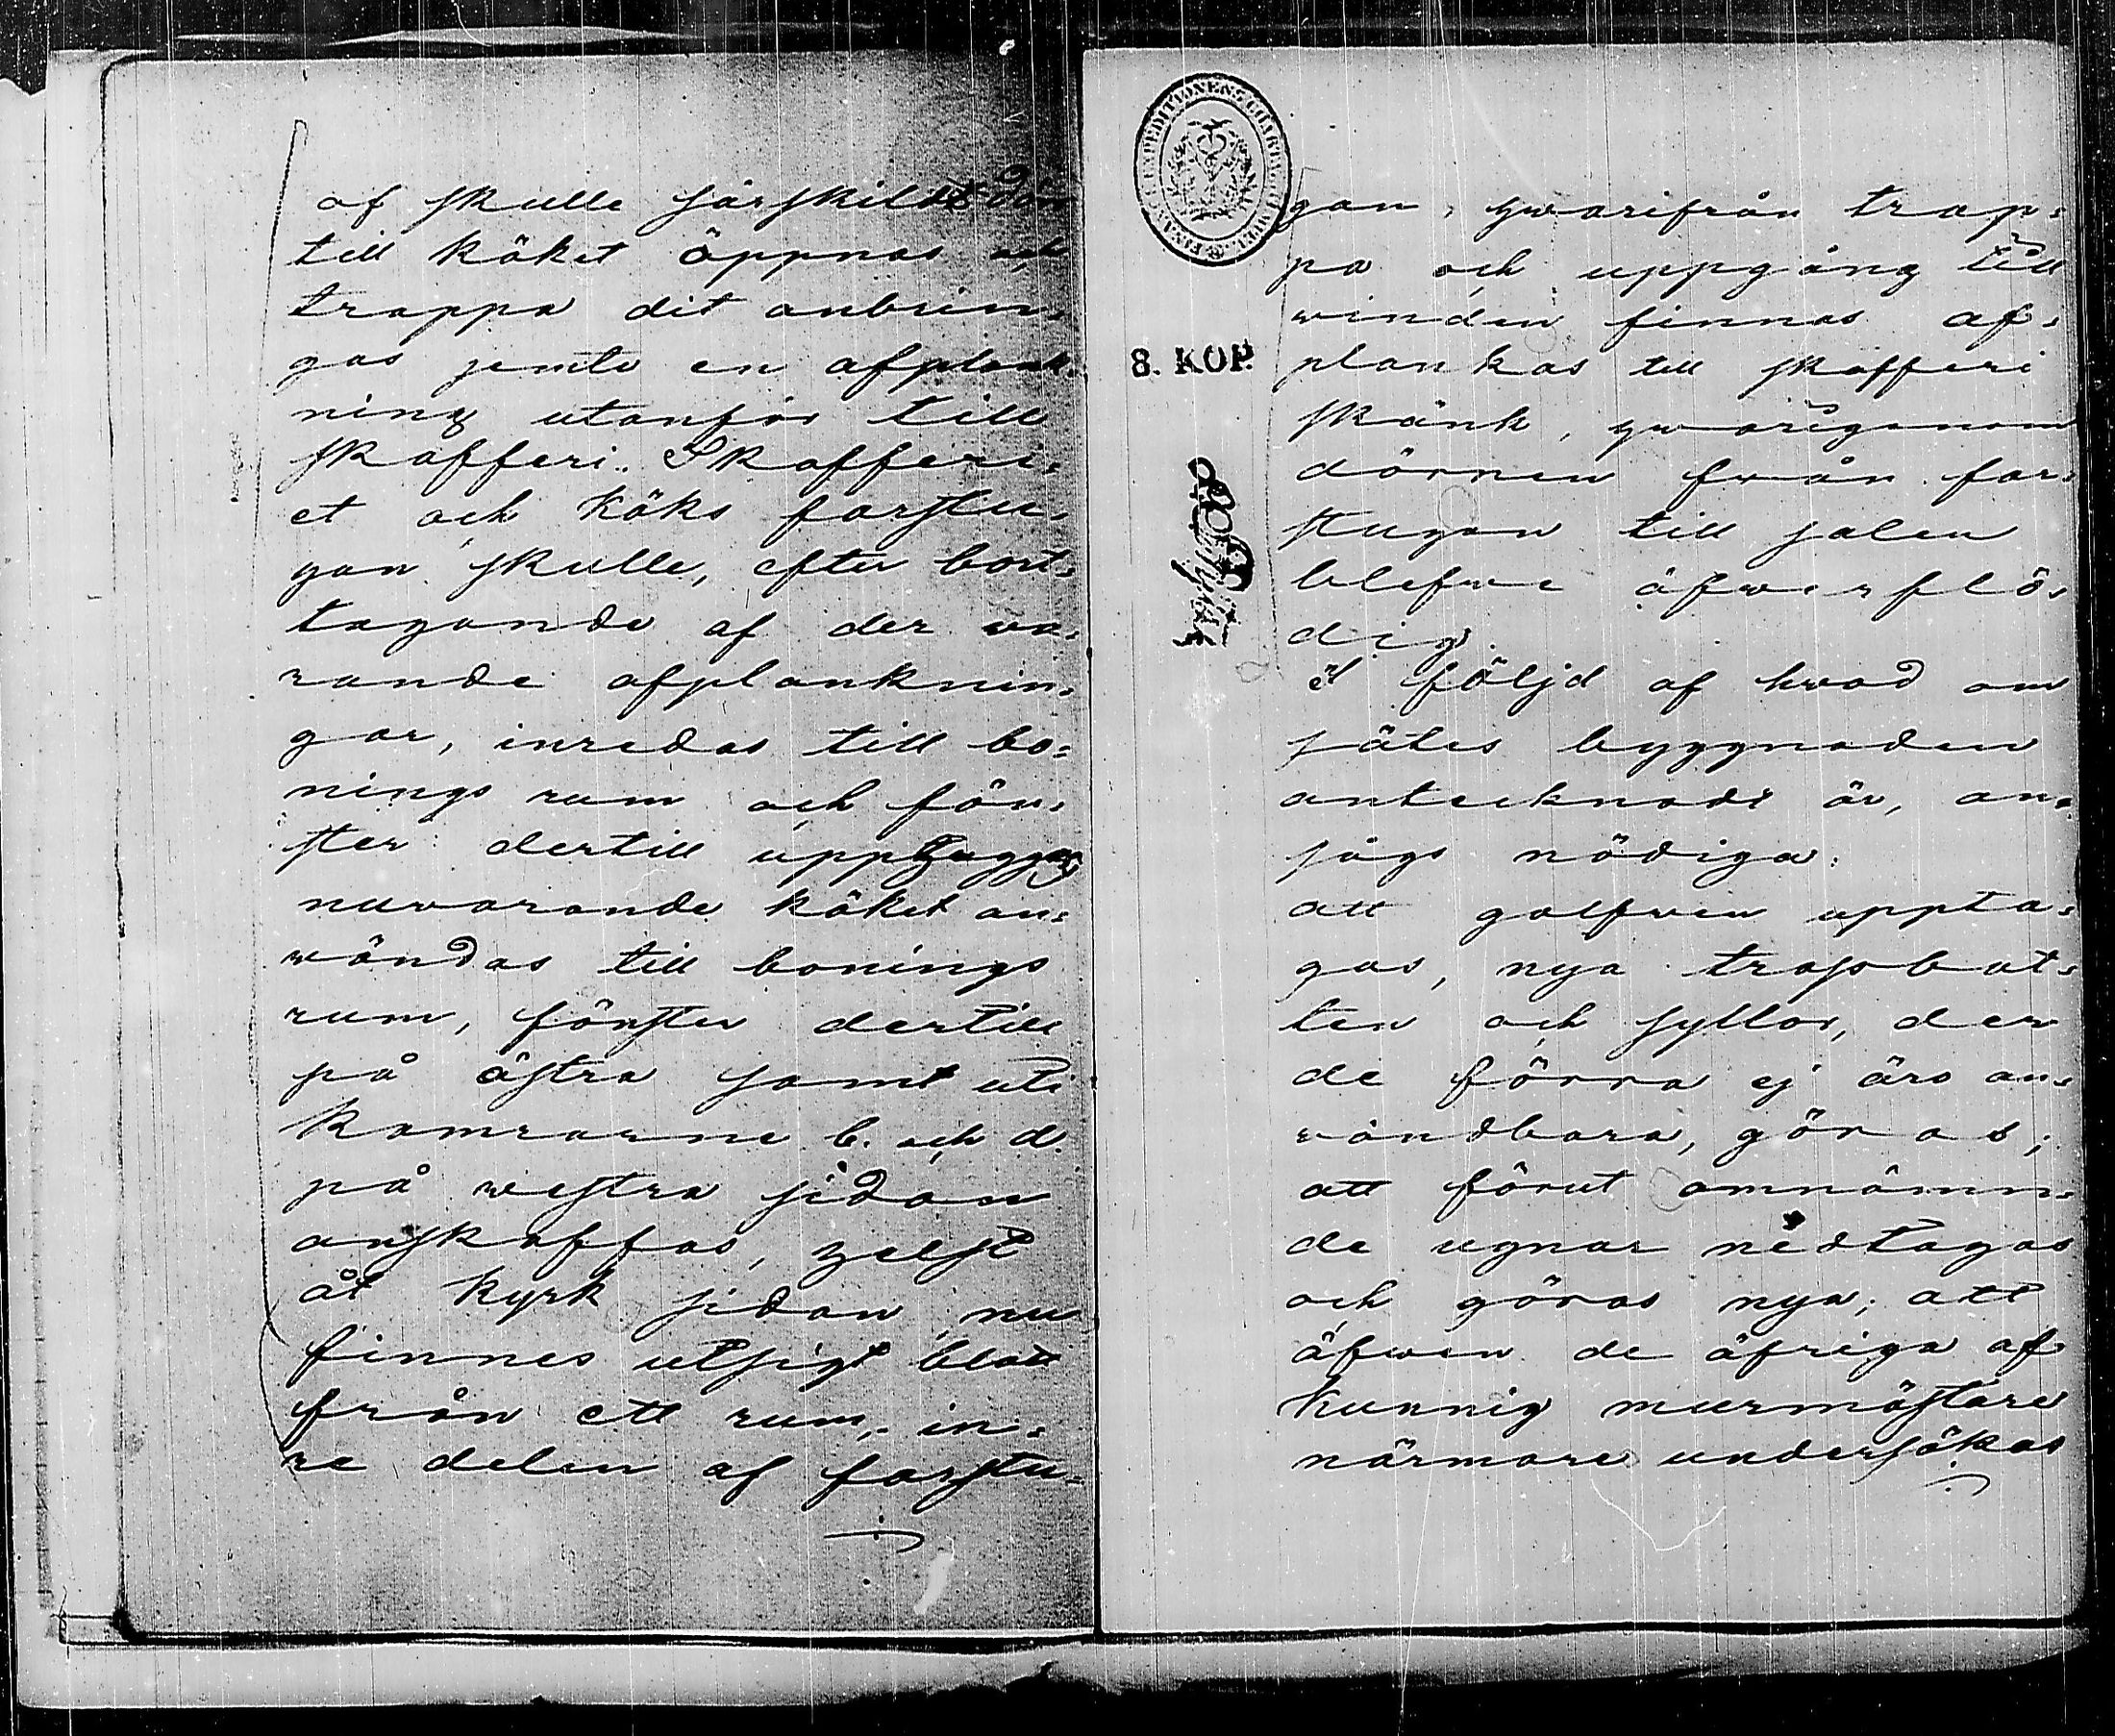 af skulle särskildt dörr
till köket öppnas och
trappa dit anbrin-
gas jemte en afplank-
ning utanför till
skafferi. Skafferi-
et och köks farstu-
gan skulle, efter bort-
tagande af der va-
rande afplanknin-
gar, inredas till bo-
nings rum och fön-
ster dertill upphuggas
nuvarande köket an-
wändas till bonings
rum, fönster dertill
på östra samt uti
kamrarne b. och d.
på westra sidan
anskaffas, helst
åt kyrk sidan nu
finnes utsigt blott
från ett rum, in-
re delen af farstu-
FINANCE EXPEDITIONENS CHARTÆ
8. KOP.
gan, hwarifrån trap-
pa och uppgång till
winden finnas af-
plankas till skafferi
skänk, hwarigenom
dörren från far-
stugan till salen
blefwe öfwerflö-
dig.
I följd af hwad om
sätes byggnaden
antecknadt är, an-
sågs nödiga:
att golfwen uppta-
gas, nya trossbot-
ten och syllor, der
de förra ej äro an-
vändbara, göras;
att förut omnämn-
de ugnar nedtagas
och göras nya; att
äfwen de öfriga af
kunnig murmästare
närmare undersökas